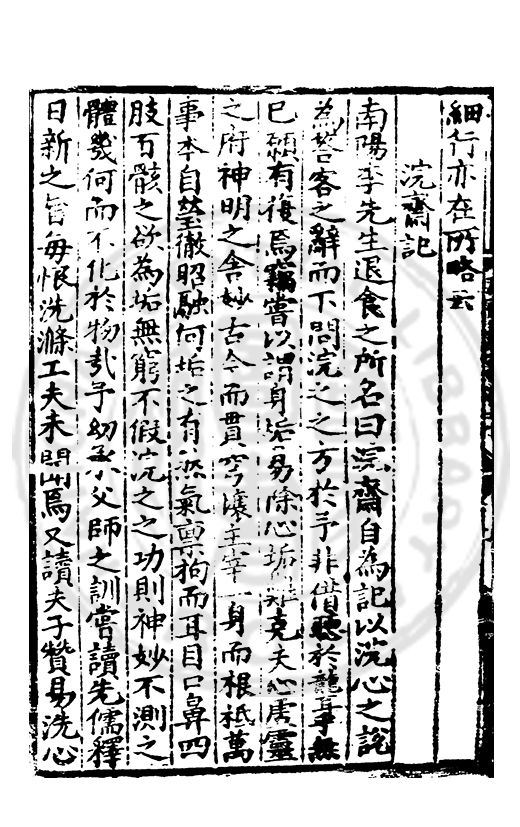 細行亦在所略云
浣齋記
南陽李先生退食之所名曰浣齋自為記以洗心之說
為荅客之辭而下問浣之之方於予非借聽於聾乎無
已願有復焉竊嘗以謂身垢易除心垢難克夫心虛靈
之府神明之舍妙古今而貫穹壤主宰一身而根柢萬
事本自瑩徹昭融何垢之有然氣稟拘而耳目口鼻四
肢百骸之欲為垢無窮不假浣之之功則神妙不測之
體幾何而不化於物哉予幼承父師之訓嘗讀先儒釋
日新之旨每恨洗滌工夫未聞焉又讀夫子贊易洗心
LIBRARY